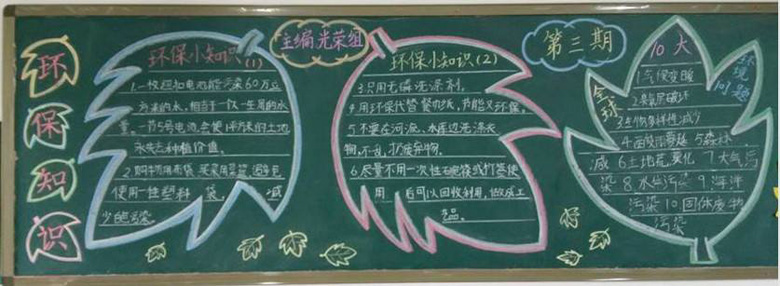 环
保
知
识
环保小知识
(1)
1.一枚纽扣电池能污染60万立
方米的水,相当于一个人一生用的水
量。一节5号电池会使1平方米的土地
永失去利用价值。
2.购物用布袋 买菜用菜篮
使用一性塑料袋 减
少白色污染
主编:光荣组
环保小知识(2)
3.只用无磷洗涤剂。
4.用环保代替餐巾纸,节能又环保。
5.不要在河流、水库边洗涤衣
物,不乱扔废弃物。
6.尽量不用一次性
用 后可以回收利用,做成工
艺品。
第三期
10大
全球
环境
问题
1气候变暖
2臭氧破坏
3生物多样性减少
4酸雨蔓延 5森林
减 6土地荒漠化 7大气污
染 8水体污染 9海洋
污染 10固体废物
污染